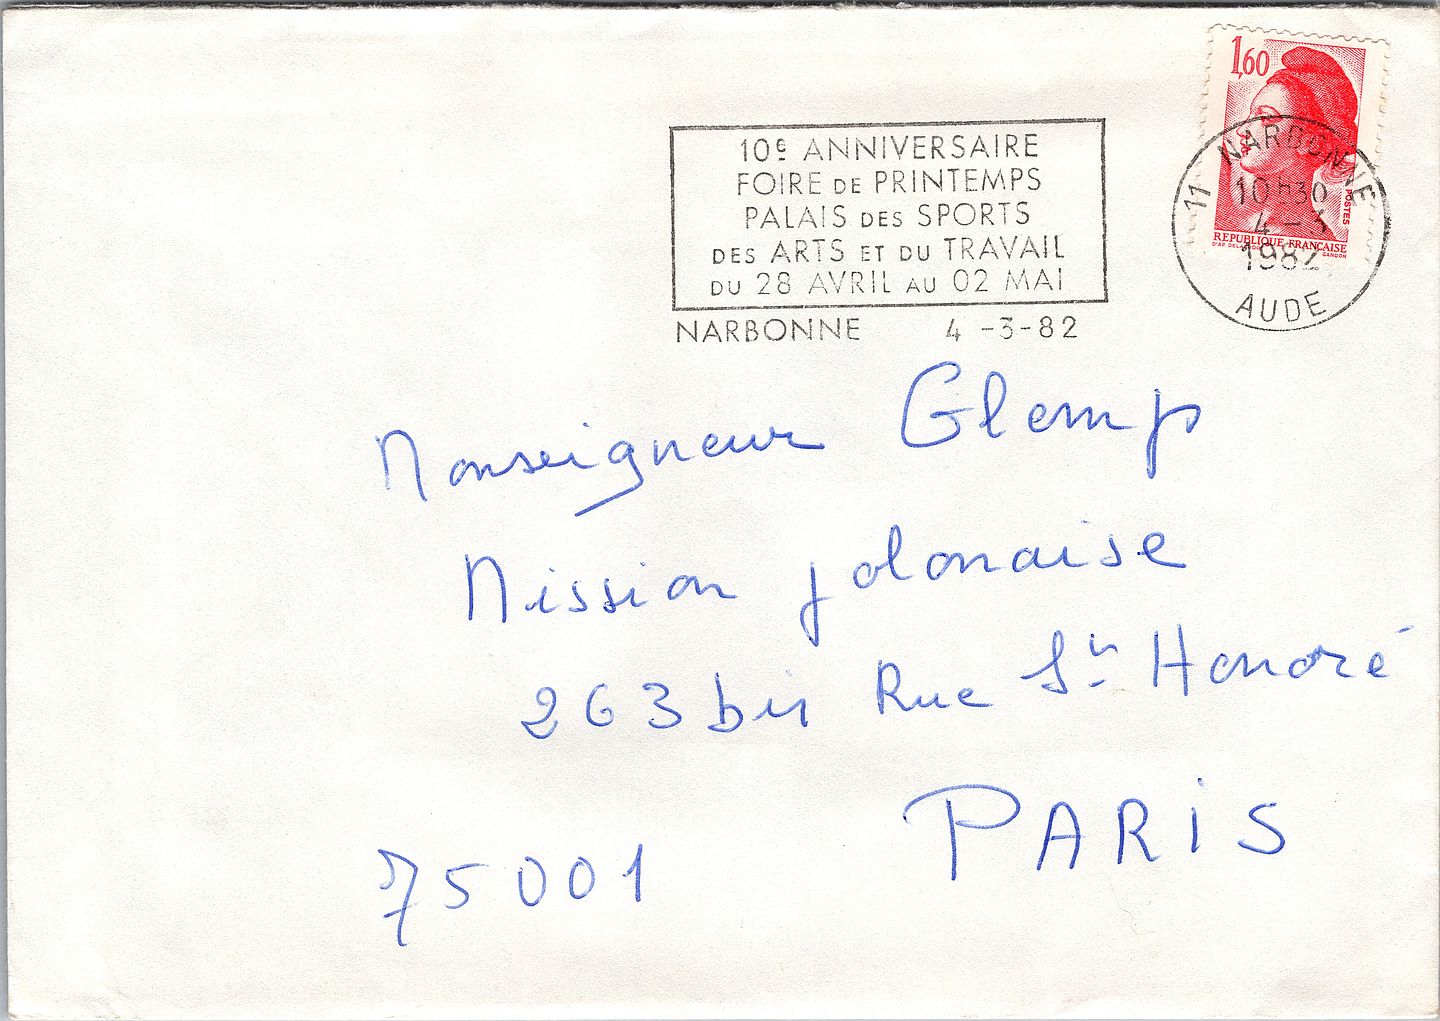 1,60
POSTES
REPUBLIQUE FRANÇAISE
GANDON
10e ANNIVERSAIRE
FOIRE DE PRINTEMPS
PALAIS DES SPORTS
DES ARTS ET DU TRAVAIL
DU 28 AVRIL AU 02 MAI
NARBONNE 4 -3-82
11 NARBONNE
10H30
4 - 3
1982
AUDE
Monseigneur Glemp
Mission polonaise
263 bis Rue St Honoré
75001 PARIS